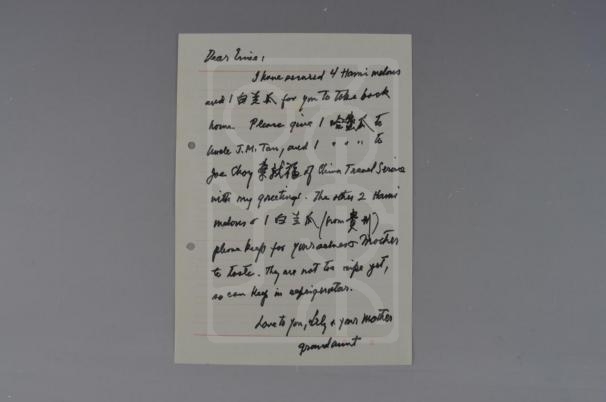 Dear Erica:
I have secured 4 Hami melons
and 1 白兰瓜 for you to take back
home. Please give 1 哈蜜瓜 to
Uncle J.M. Tan, and 1 " " " to
Joe Choy of China Travel Service
with my greetings. The other 2 Hami
melons & 1 白兰瓜 (from 貴州)
please keep for yourselves & Mother
to taste. They are not too ripe yet,
so can keep in refrigerator.
Love to you, Lily & your Mother
grandaunt